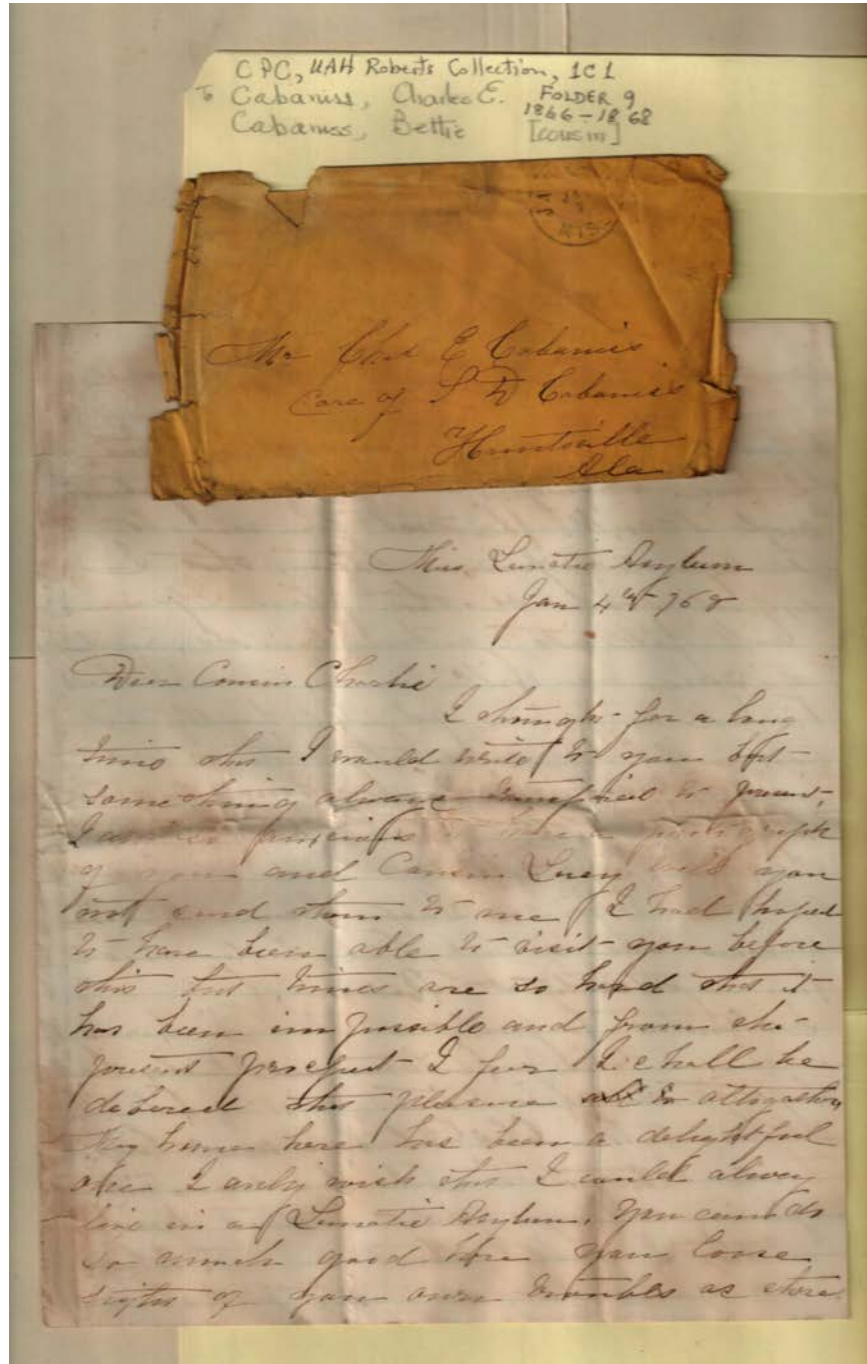 CPC, UAH Roberts Collection, 1C1
To Cabaniss, Charles E. FOLDER 9
1866-1868
Cabaniss, Bettie [cousin]
Mr Chas E Cabaniss
Care of S D Cabaniss
Huntsville
Ala
Miss Lunatic Asylum
Jan 4th /68
Dear Cousin Charlie
I thought for a long
time that I would write to you but
something always to prevent,
I am so anxious to have a photograph
of you and Cousin Lucy will you
not send them to me I had hoped
to have been able to visit you before
this but times are so hard that it
has been impossible and from the
present prospect I fear I shall be
debared this pleasure altogether
My home here has been a delightful
one I only wish that I could alway
live in a Lunatic Asylum, you can do
so much good here you loose
sight of you own troubles as there